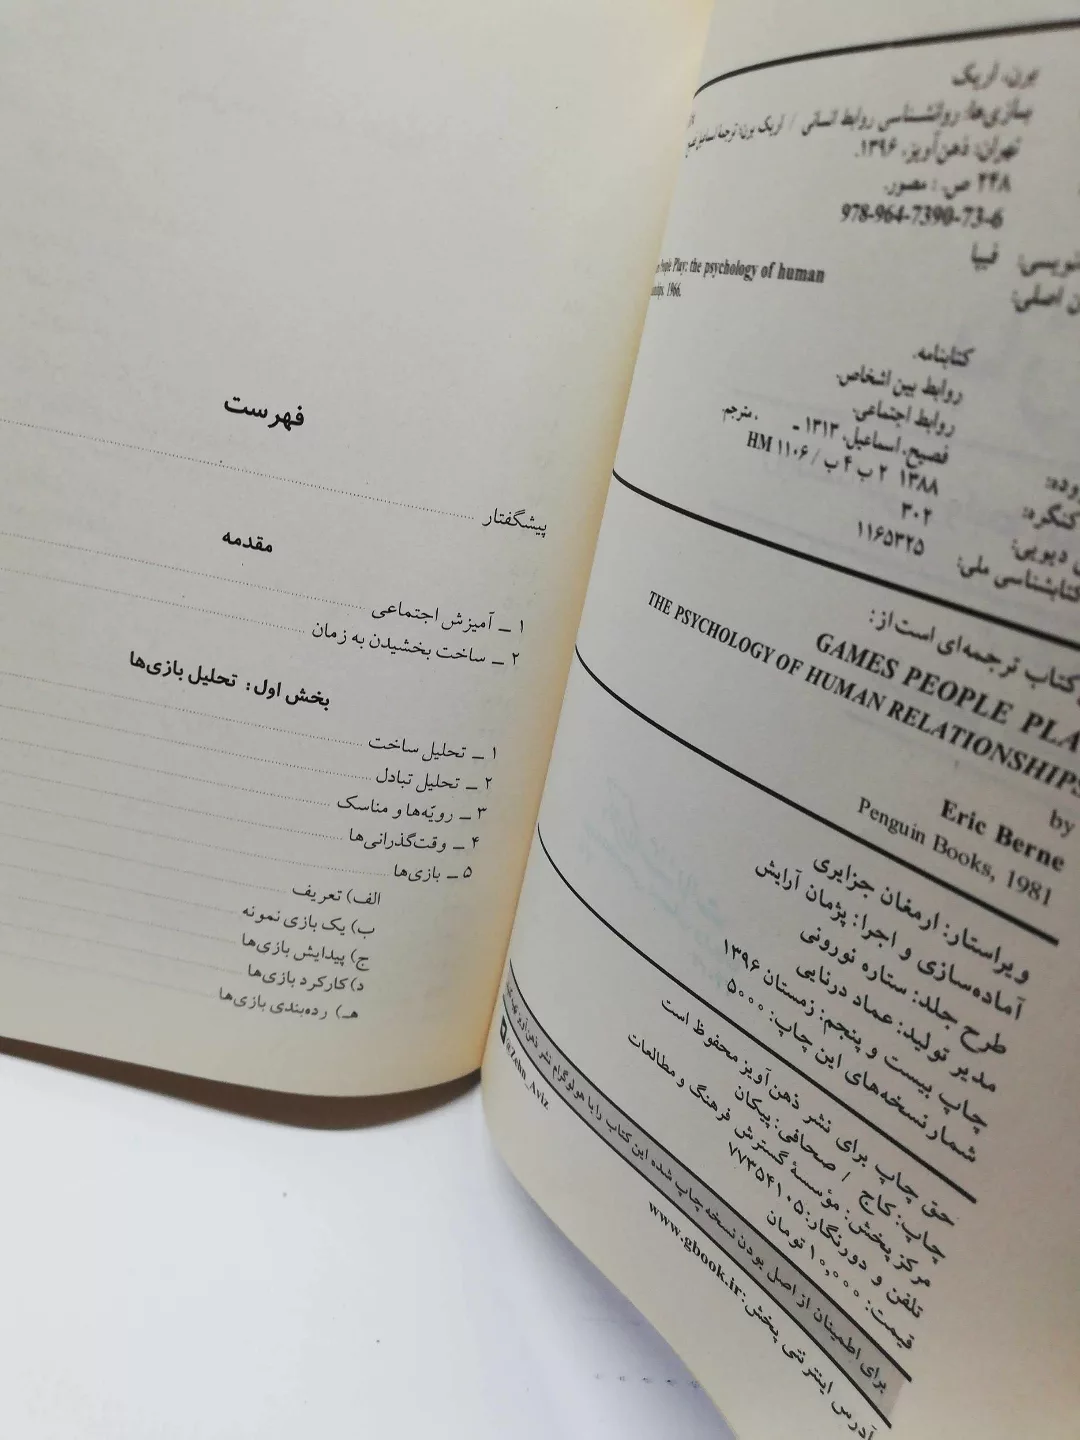 برن، اریک
بازی‌ها: روانشناسی روابط انسانی / اریک برن؛ ترجمهٔ اسماعیل فصیح
تهران: ذهن‌آویز، ۱۳۹۶.
۲۴۸ ص.: مصور.
978-964-7390-73-6
نویسی: فیپا
ن اصلی:
People Play: the psychology of human
1966.
کتابنامه.
روابط بین اشخاص.
روابط اجتماعی.
فصیح، اسماعیل، ۱۳۱۳ ـ ، مترجم.
۱۳۸۸ ۲ ب ۴ ب / ۱۱۰۶ HM
کنگره:
۳۰۲
دیویی:
۱۱۶۵۳۲۵
کتابشناسی ملی:
کتاب ترجمه‌ای است از:
GAMES PEOPLE PLA
THE PSYCHOLOGY OF HUMAN RELATIONSHIPS
by
Eric Berne
Penguin Books, 1981
ویراستار: ارمغان جزایری
آماده‌سازی و اجرا: پژمان آرایش
طرح جلد: ستاره نورونی
مدیر تولید: عماد درنایی
چاپ بیست و پنجم: زمستان ۱۳۹۶
شمار نسخه‌های این چاپ: ۵۰۰۰
حق چاپ برای نشر ذهن‌آویز محفوظ است
چاپ: کاج / صحافی: پیکان
مرکز پخش: مؤسسهٔ گسترش فرهنگ و مطالعات
تلفن و دورنگار: ۷۷۳۵۴۱۰۵
قیمت: ۱۰,۰۰۰ تومان
برای اطمینان از اصل بودن نسخه چاپ شده این کتاب را با هولوگرام نشر ذهن‌آویز
@Zehn_Aviz
آدرس اینترنتی پخش: www.gbook.ir
فهرست
پیشگفتار
مقدمه
۱ ـ آمیزش اجتماعی
۲ ـ ساخت بخشیدن به زمان
بخش اول: تحلیل بازی‌ها
۱ ـ تحلیل ساخت
۲ ـ تحلیل تبادل
۳ ـ رویّه‌ها و مناسک
۴ ـ وقت‌گذرانی‌ها
۵ ـ بازی‌ها
الف) تعریف
ب) یک بازی نمونه
ج) پیدایش بازی‌ها
د) کارکرد بازی‌ها
هـ) رده‌بندی بازی‌ها